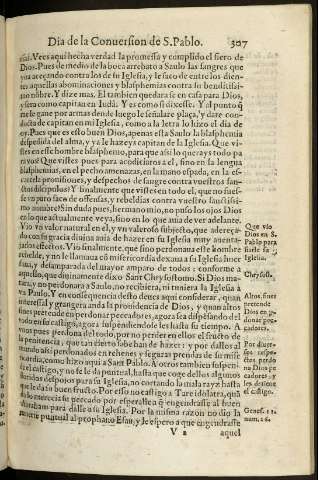 Dia de la Conuersion de S. Pablo. 327
Vees aqui hecha verdad la promessa y cumplido el fiero de
Dios. Pues de medio de la boca arrebato a Saulo las sangres que
yua acezando contra los de su Iglesia, y le saco de entre los dien-
tes aquellas abominaciones y blasphemias contra su benditissi-
mo nõbre. Y dize mas. El tambien quedara se en casa para Dios,
y sera como capitan en Iudá. Y es como si dixesse. Y al punto q̃
me le gane por armas dende luego le señalare plaça, y dare con-
ducta de capitan en mi Iglesia, como a la letra lo hizo el dia de
oy. Pues que es esto buen Dios, apenas esta Saulo la blasphemia
despedida del alma, y ya le hazeys capitan de la Iglesia. Que vis-
tes en esse hombre blasphemo, para que assi lo querays todo pa
ra vos? Que vistes pues para acodiciaros a el, sino en la lengua
blasphemias, en el pecho amenazas, en la mano espada, en la es-
carcela promissiones, y despechos de sangre contra vuestros san-
ctos discipulos? Y finalmente que vistes en todo el, que no fues-
se vn puro saco de offensas, y rebeldias contra vuestro sanctissi-
mo nombre? Sin duda pues, hermano mio, no puso los ojos Dios
en lo que actualmente veya, sino en lo que auia de ver adelante.
Vio vn valor natural en el, y vn valeroso subjecto, que adereça
do con su gracia diuina auia de hazer en su Iglesia muy auenta-
jados effectos. Vio finalmente, que sino perdonara este hombre
rebelde, y no le llamaua cõ misericordia dexaua a su Iglesia huer
fana, y desamparada del mayor amparo de todos: conforme a
aquello, que diuinamente dixo Sant Chrysostomo. Si Dios ma-
tara, y no perdonara a Saulo, no recibiera, ni tuuiera la Iglesia a
Paulo. Y en consequencia desto deueys aqui considerar, quan
interessal y grangera anda la prouidencia de Dios, y quan altos
fines pretende en perdonar peccadores, agora sea dispensando del
todo en su castigo, agora suspendiendole hasta su tiempo. A
vnos pues perdona del todo, por no perder en ellos el fructo de
la penitencia, que tan cierto sabe han de hazer: y por dallos al
mundo assi perdonados en rehenes y seguras prendas de su mise
ricordia, como hizo aqui a Sant Pablo. A otros tambien suspen-
de el castigo, y no se le da puntual, hasta que coge dellos algunos
lucidos despojos para su Iglesia, no cortando la mala rayz hasta
que le da su buen fructo. Por esso no castigo a Tare idolatra, quã
do lo merecia su pecado por esperalle a q̃ engendrasse al buen
Abraham para dalle a su Iglesia. Por la misma razon no dio la
muerte puntual al prophano Esau, y le espero a que engendrasse
V 2 aquel
Que vio
Dios en S.
Pablo para
fiarle su
Iglesia.
Chrysost.
Altos fines
pretende
Dios en p̃-
donar pec-
cadores.
Por diuer-
sos respe-
ctos perdo-
na Dios algunos
pecadores y
les dexa
el castigo.
Genes. 11.
num. 26.